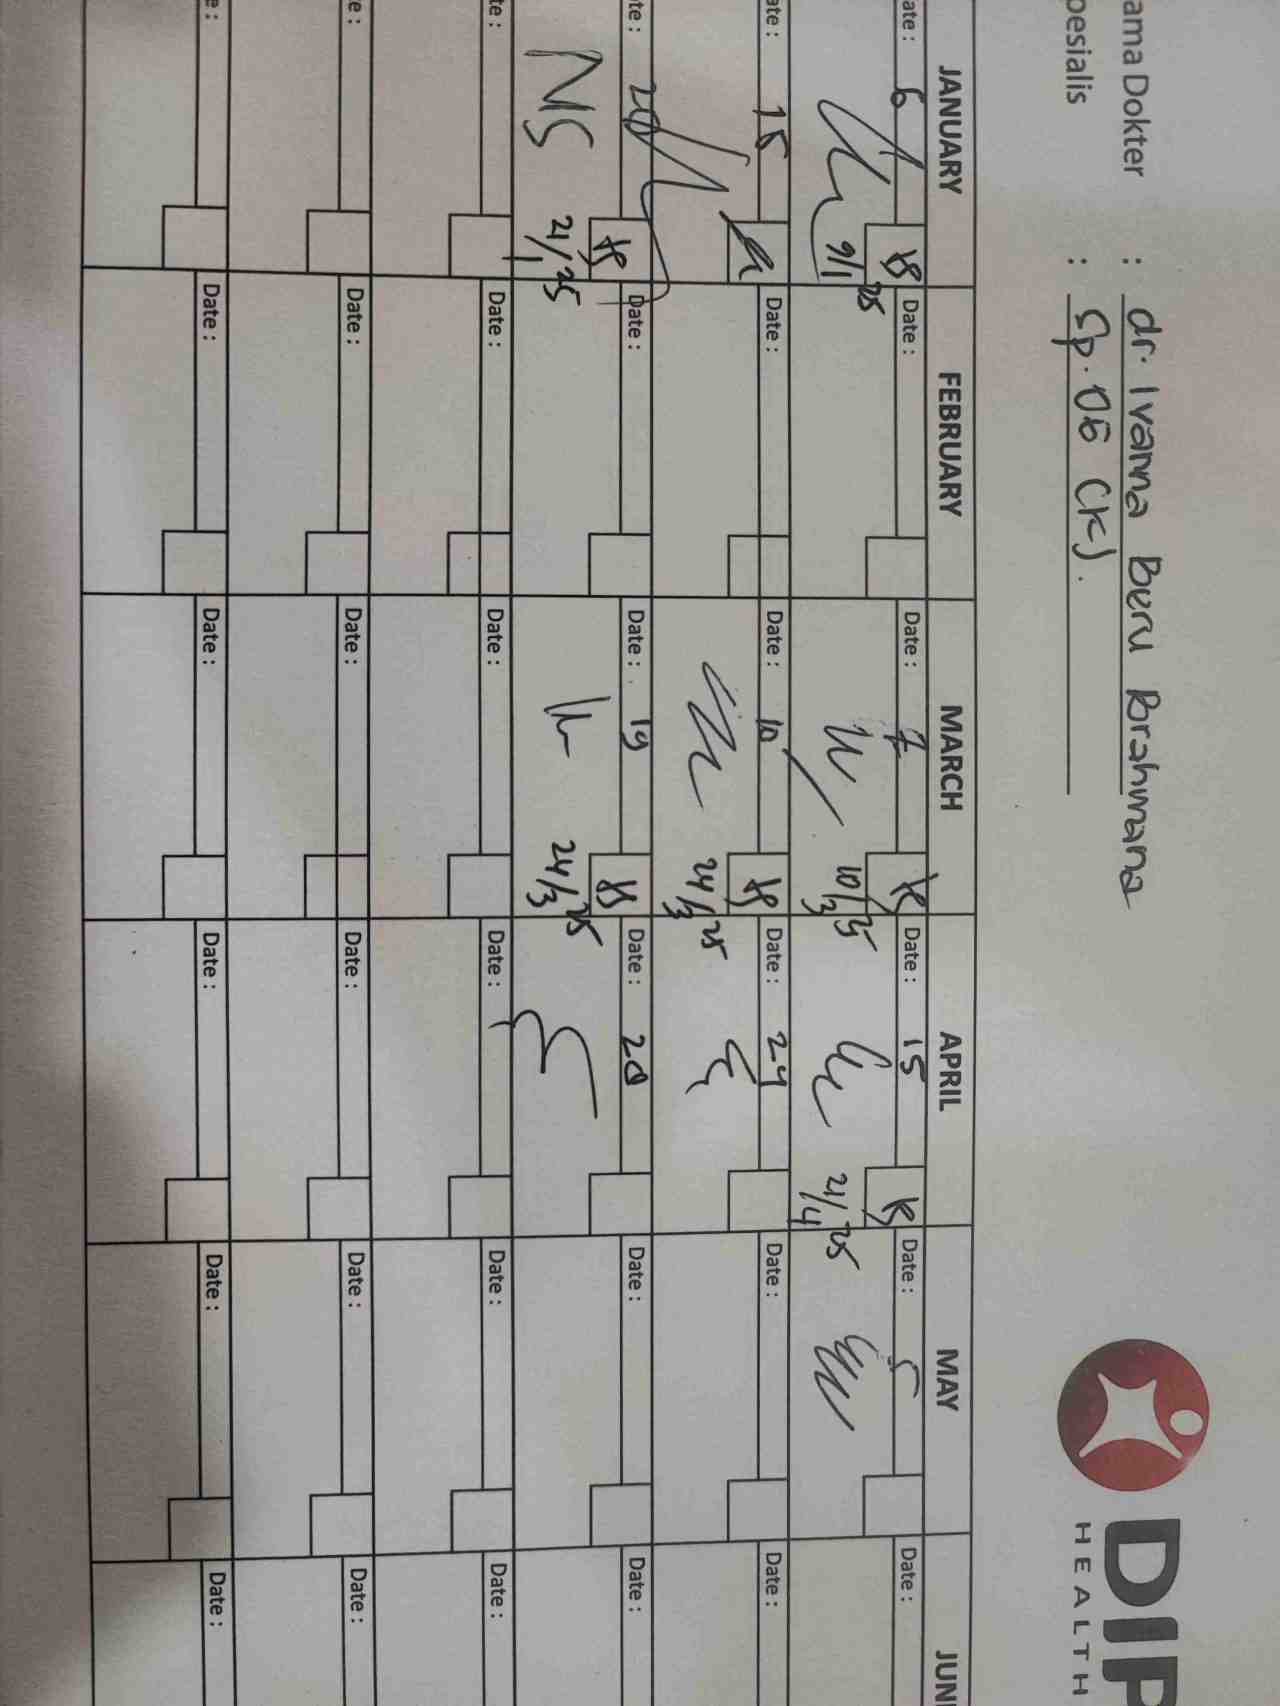 ama Dokter : dr. Ivanna Beru Brahmana
pesialis : Sp. OG (K).
DIP
HEALTH
JANUARY FEBRUARY MARCH APRIL MAY JUN
ate : 6 Date : Date : 7 Date : 15 Date : 5 Date :
9/1 25 10/3 25 21/4 25
ate : 15 Date : Date : 10 Date : 24 Date : Date :
24/3 25
te : 20 Date : Date : 19 Date : 28 Date : Date :
NS 21/1 25 24/3 25
te : Date : Date : Date : Date : Date :
e : Date : Date : Date : Date : Date :
e : Date : Date : Date : Date : Date :